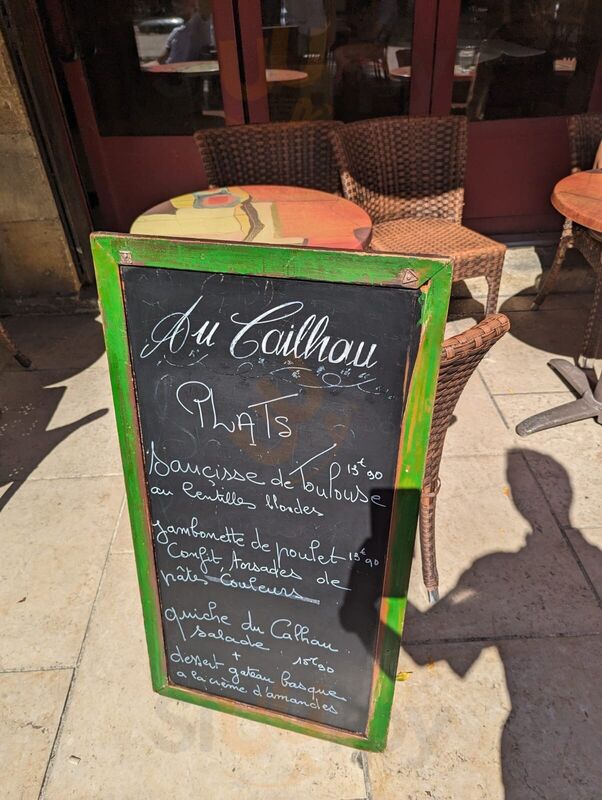 Au Cailhau
PLATS
Saucisse de Toulouse 13€90
au lentilles blondes
Jambonette de poulet 13€90
Confit, torsades de
pâtes Couleurs
quiche du Calhau
Salade. 15€90
+
dessert gateau basque
a la crème d'amandes